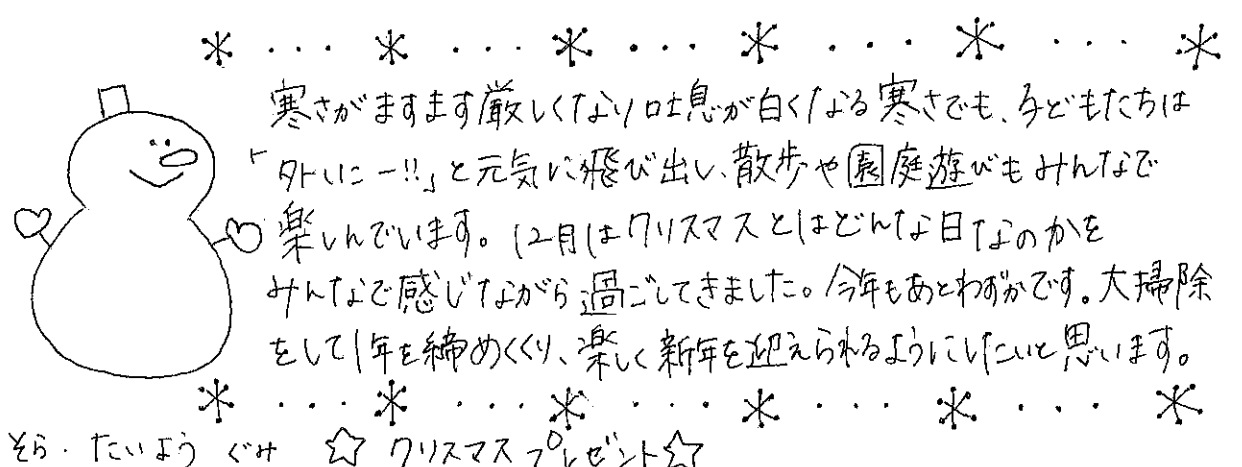 寒さがますます厳しくなり吐息が白くなる寒さでも、子どもたちは
「外にいこー!!」と元気に飛び出し、散歩や園庭遊びもみんなで
楽しんでいます。12月はクリスマスとはどんな日なのかを
みんなで感じながら過ごしてきました。今年もあとわずかです。大掃除
をして1年を締めくくり、楽しく新年を迎えられるようにしたいと思います。
そら・たいよう ぐみ ☆ クリスマスプレゼント☆